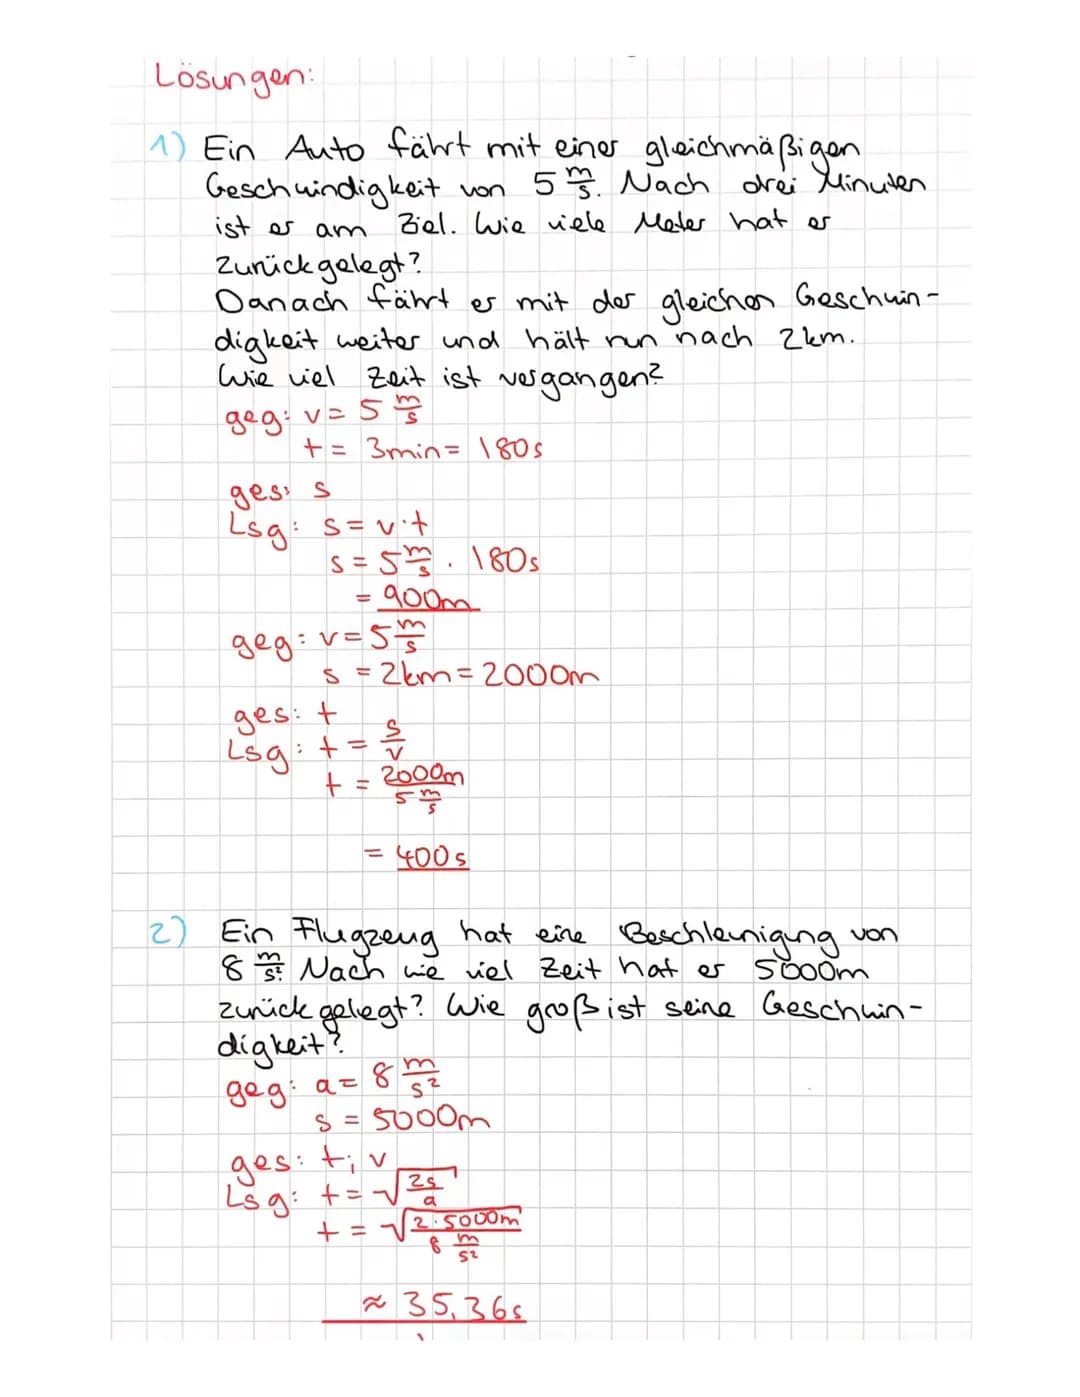 Lösungen:
1) Ein Auto fährt mit einer gleichmäßigen
Geschwindigkeit von 5 m/s. Nach drei Minuten
ist er am Ziel. Wie viele Meter hat er
zurückgelegt?
Danach fährt er mit der gleichen Geschwin-
digkeit weiter und hält nun nach 2km.
Wie viel Zeit ist vergangen?
geg: v = 5 m/s
t = 3min = 180s
ges: s
Lsg: s = v·t
s = 5 m/s · 180s
= 900m
geg: v = 5 m/s
s = 2km = 2000m
ges: t
Lsg: t = s/v
t = 2000m / 5 m/s
= 400s
2) Ein Flugzeug hat eine Beschleunigung von
8 m/s². Nach wie viel Zeit hat er 5000m
zurückgelegt? Wie groß ist seine Geschwin-
digkeit?
geg: a = 8 m/s²
s = 5000m
ges: t; v
Lsg: t = √(2s/a)
t = √(2·5000m / 8 m/s²)
≈ 35,36s